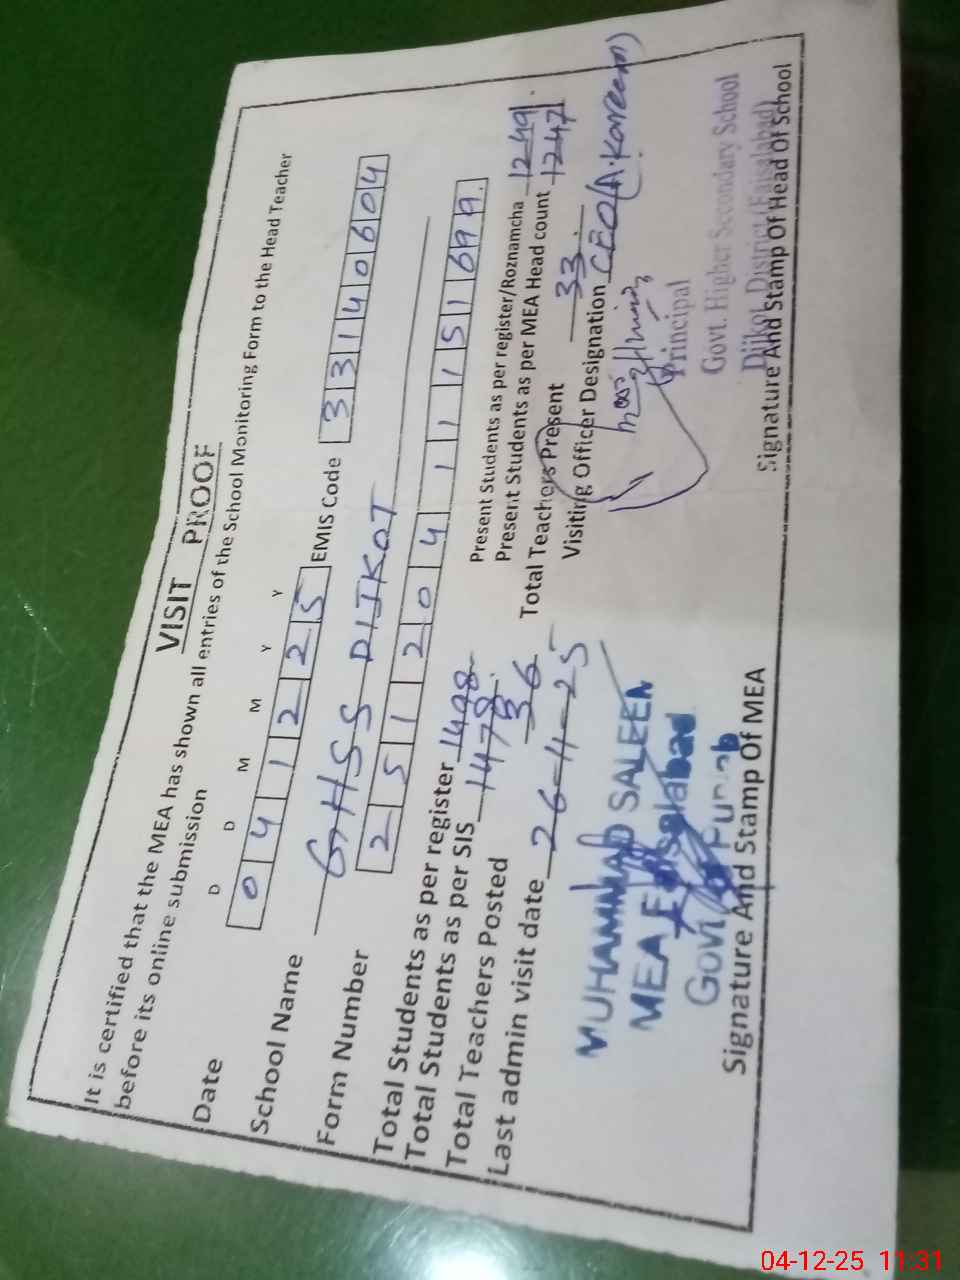 VISIT PROOF
It is certified that the MEA has shown all entries of the School Monitoring Form to the Head Teacher
before its online submission
D D M M Y Y
Date 0 4 1 2 2 5 EMIS Code 3 3 1 4 0 6 0 4
School Name GHSS DIJKOT
Form Number 2 5 1 2 0 4 1 1 1 5 1 6 9 9
Total Students as per register 1498 Present Students as per register/Roznamcha 1249
Total Students as per SIS 1478 Present Students as per MEA Head count 1247
Total Teachers Posted 36 Total Teachers Present 33
Last admin visit date 26-4-25 Visiting Officer Designation CEO (A.Kareem)
MUHAMMAD SALEEM
MEA Faisalabad
Principal
Govt. Higher Secondary School
Dijkot District (Faisalabad)
Signature And Stamp Of MEA Signature And Stamp Of Head Of School
04-12-25 11:31